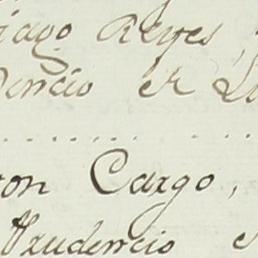 iago Reyes,
dencio el L
on Cargo,
Prudencio e